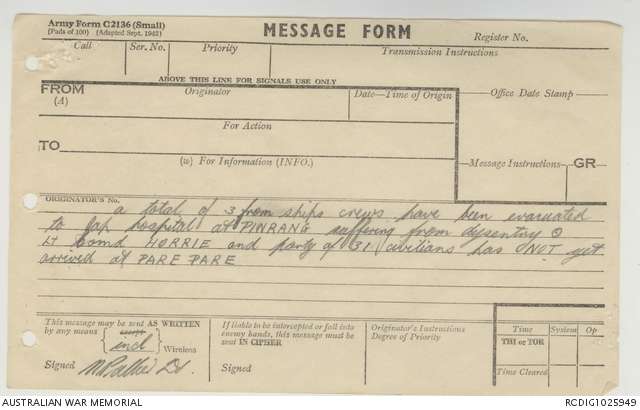 Army Form C2136 (Small)
(Pads of 100) (Adapted Sept. 1942)
MESSAGE FORM
Register No.
Call
Ser. No.
Priority
Transmission Instructions
ABOVE THIS LINE FOR SIGNALS USE ONLY
FROM
(A)
Originator
Date—Time of Origin
Office Date Stamp
For Action
TO
(W) For Information (INFO.)
Message Instructions
GR
ORIGINATOR'S No.
a total of 3 from ships crews have been evacuated
to Jap hospital at PINRANG suffering from dysentry
Lt Comd HORRIE and party of 31 civilians has NOT yet
arrived at PARE PARE
This message may be sent AS WRITTEN
by any means
except
incl
Wireless
Signed
If liable to be intercepted or fall into
enemy hands, this message must be
sent IN CIPHER
Signed
Originator's Instructions
Degree of Priority
Time
System
Op
THI or TOR
Time Cleared
AUSTRALIAN WAR MEMORIAL
RCDIG1025949